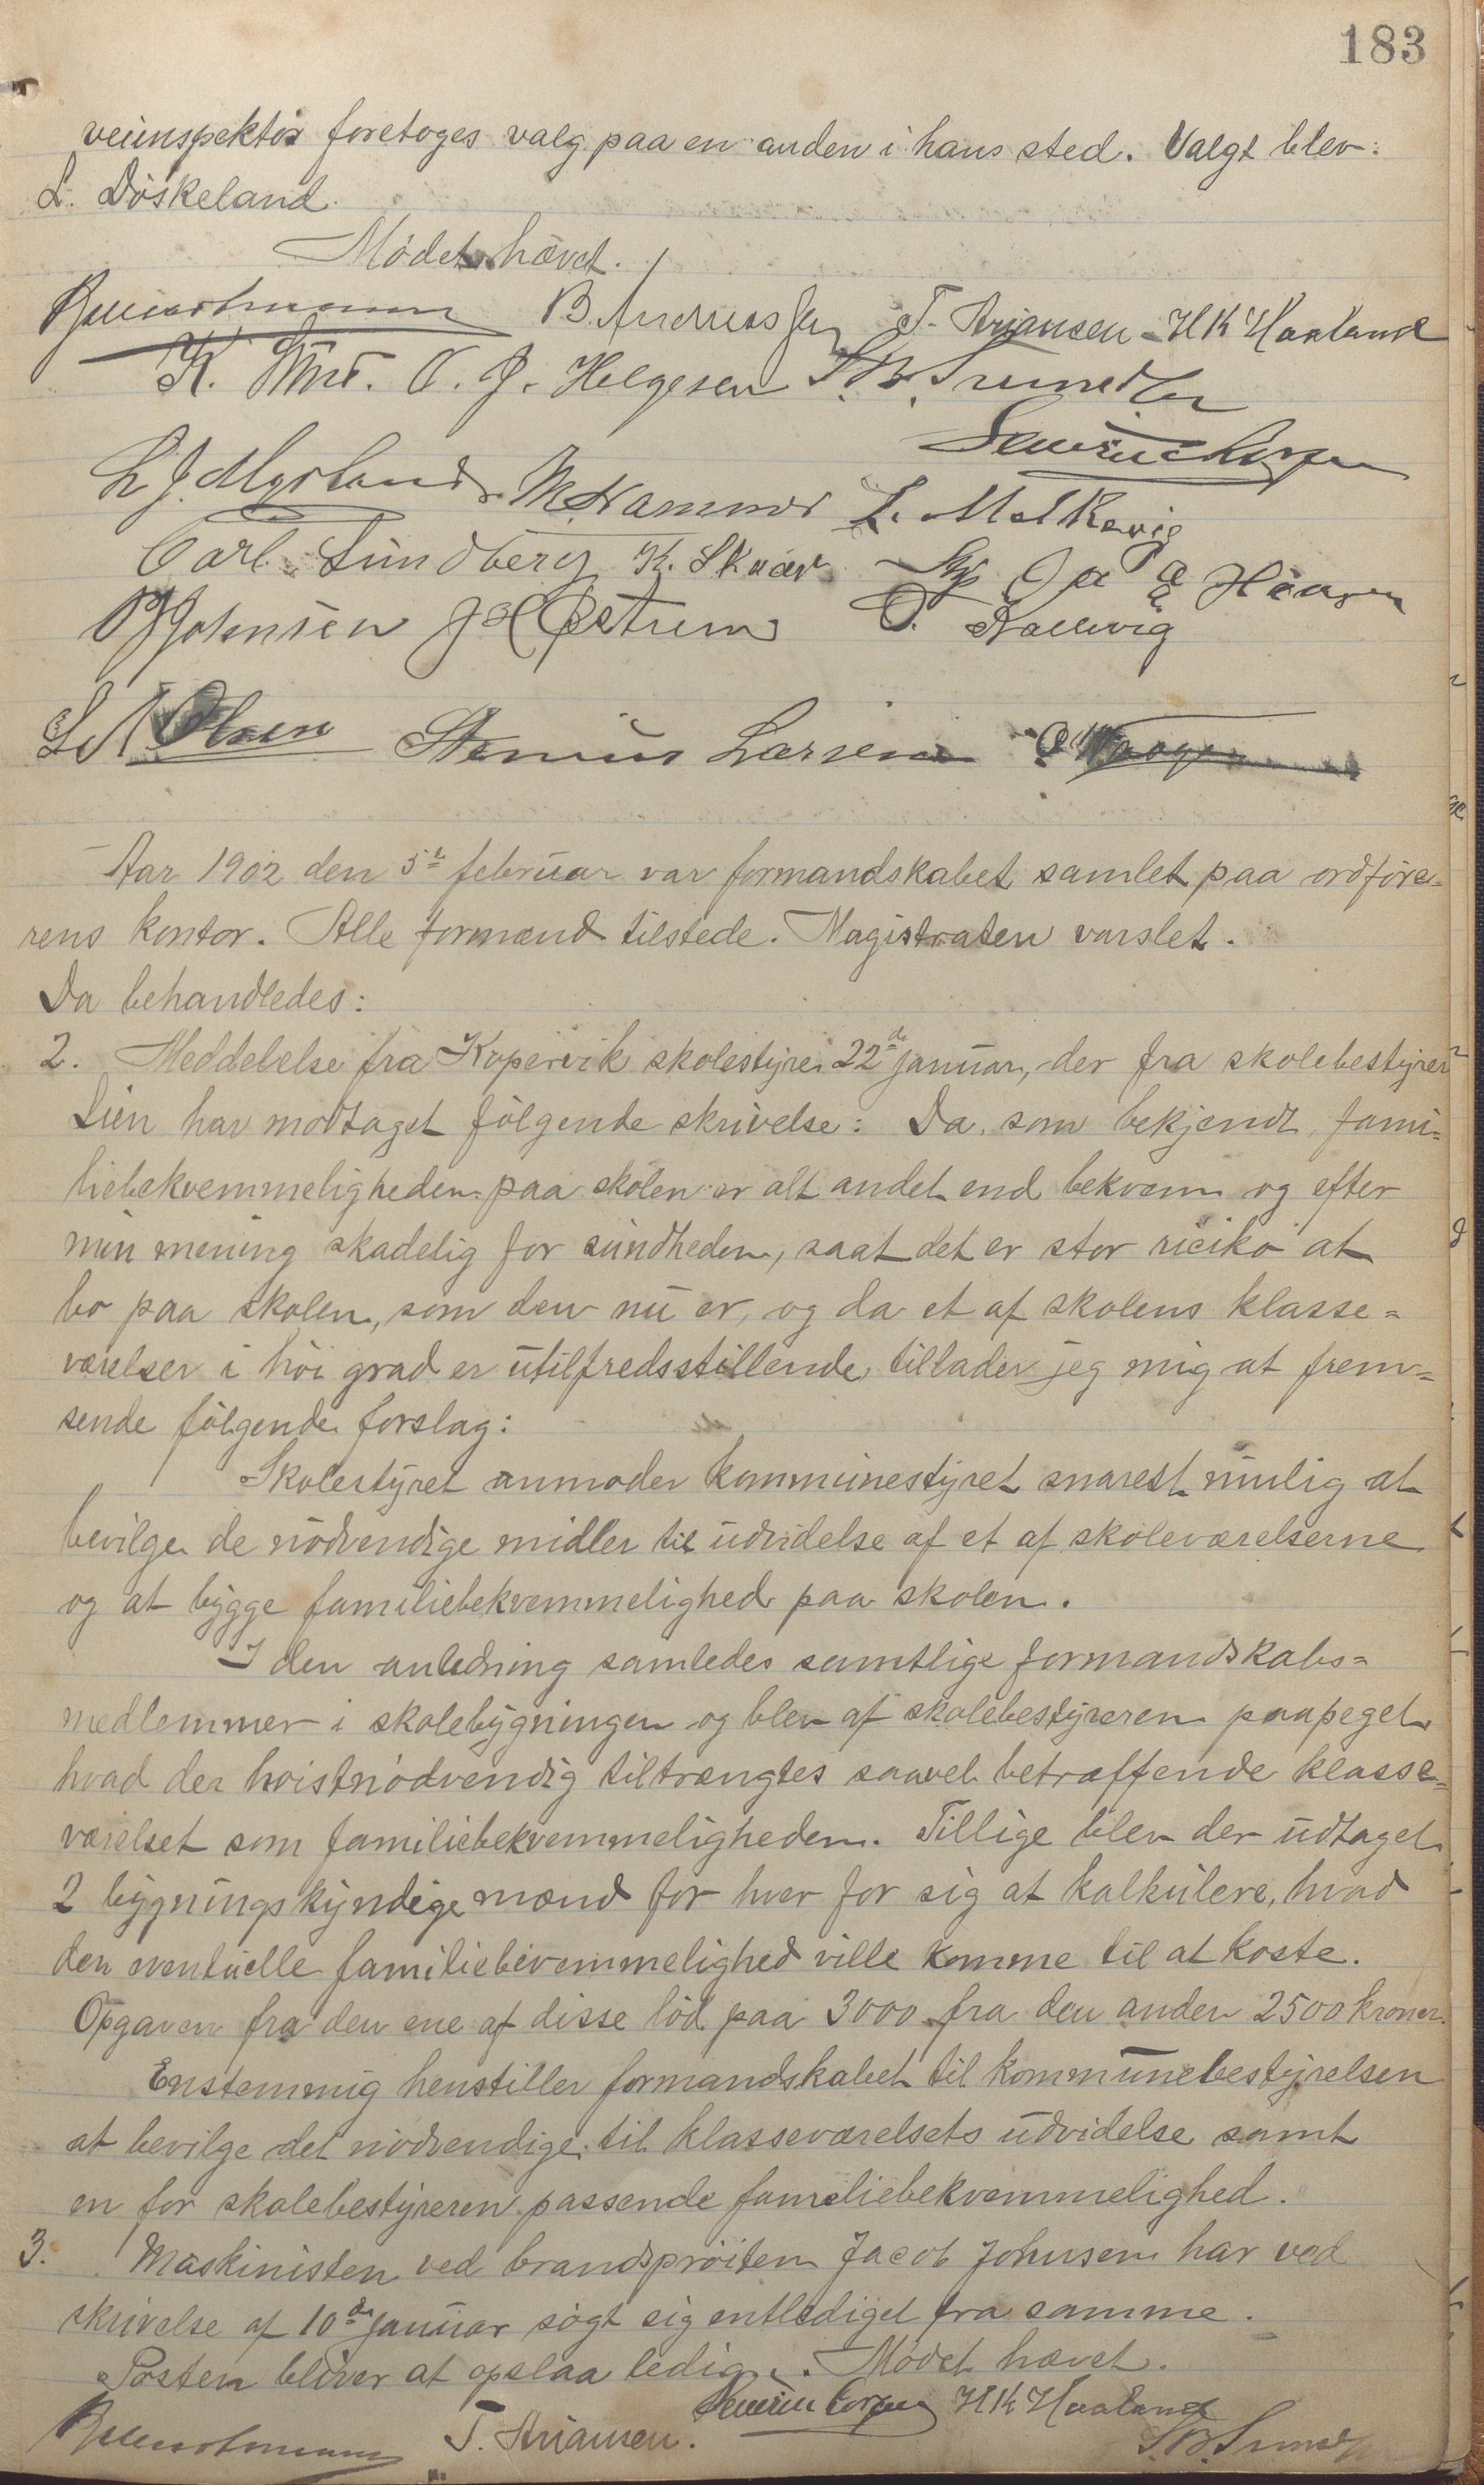 183
veiinspektör foretoges valg paa en anden i hans sted. Valgt blev:
L. Döskeland.
Mødet hævet.
B. Andreassen T. Arjansen H K Haaland
K. O. J. Helgesen S. B. Sund
Severin
L J Myrland M. Hammer L. Medkevig
Carl Sundberg K. Skaar
Johnsen Østrem O. Kallevig
Olsen Stenius Larsen
Aar 1902 den 5te februar var formandskabet samlet paa ordføre=
rens kontor. Alle formænd tilstede. Magistraten varslet.
Da behandledes:
2. Meddelelse fra Kopervik skolestyre 22de januar, der fra skolebestyrer
Lien har modtaget følgende skrivelse: Da, som bekjendt, fami=
liebekvemmeligheden paa skolen er alt andet end bekvem og efter
min mening skadelig for sundheden, saat det er stor riciko at
bo paa skolen, som den nu er, og da et af skolens klasse=
værelser i høi grad er utilfredsstillende, tillader jeg mig at frem=
sende følgende forslag:
Skolestyret anmoder kommunestyret snarest mulig at
bevilge de nødvendige midler til udvidelse af et af skoleværelserne
og at bygge familiebekvemmelighed paa skolen.
I den anledning samledes samtlige formandskabs=
medlemmer i skolebygningen og blev af skolebestyreren paapeget,
hvad der høistnødvendig tiltrængtes saavel betræffende klasse=
værelset som familiebekvemmeligheden. Tillige blev der udtaget
2 bygningskyndige mænd for hver for sig at kalkulere, hvad
den eventuelle familiebevemmelighed ville komme til at koste.
Opgaven fra den ene af disse lød paa 3000 fra den anden 2500 kroner.
Enstemmig henstiller formandskabet til kommunebestyrelsen
at bevilge det nødvendige til klasseværelsets udvidelse samt
en for skolebestyreren passende familiebekvemmelighed.
3. Maskinisten ved brandsprøiten Jacob Johnsen har ved
skrivelse af 10de januar søgt sig entlediget fra samme.
Posten bliver at opslaa ledig. Mødet hævet.
Severin H K Haaland
T. Arjansen. S. B. Sund